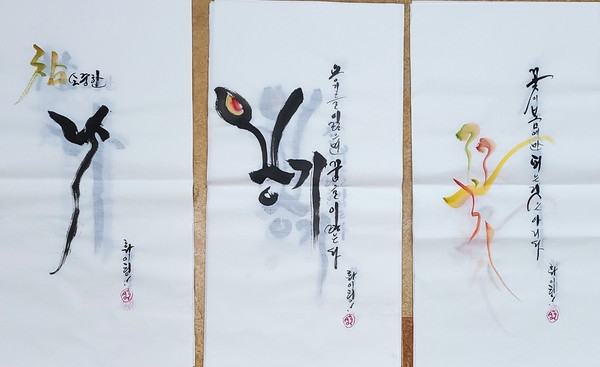 참 소중한
나
용기
용기를 잃으면 꿈을 잃는다
꽃
꽃이 봄에만 피는 것은 아니다